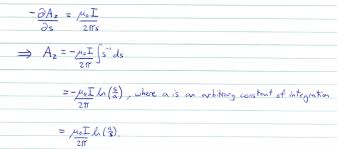 -∂A_z/∂s = μ₀I/2πs
⇒ A_z = -μ₀I/2π ∫ s⁻¹ ds
= -μ₀I/2π ln(s/a), where a is an arbitrary constant of integration
= μ₀I/2π ln(a/s).